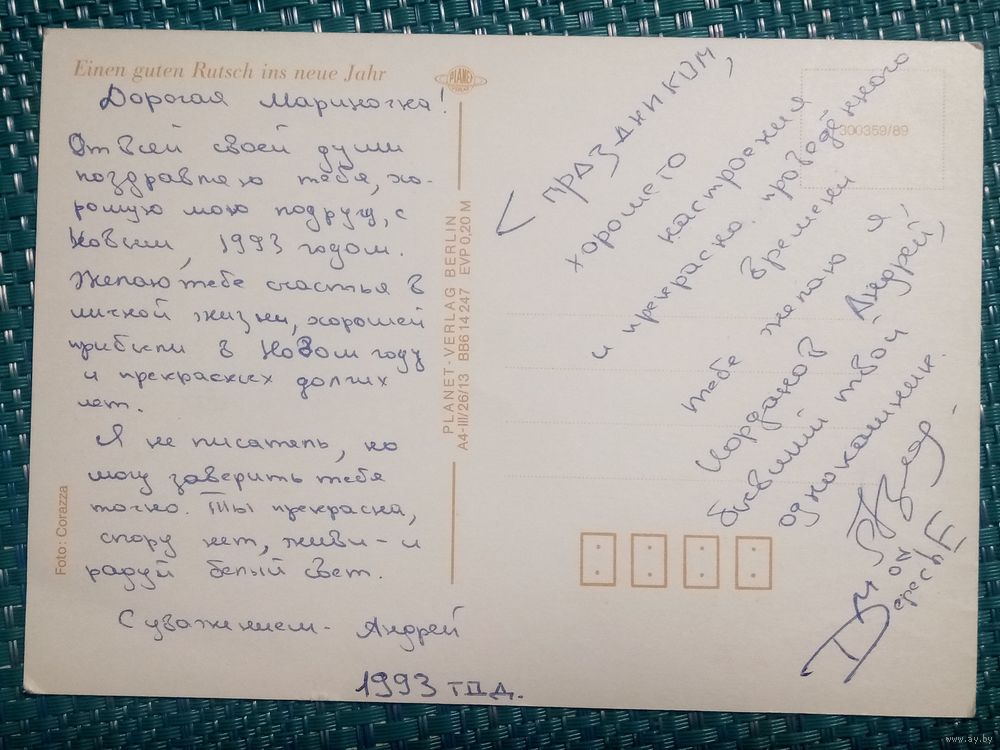 Einen guten Rutsch ins neue Jahr
PLANET
VERLAG
Дорогая Мариночка!
От всей своей души
поздравляю тебя, хо-
рошую мою подругу, с
Новым, 1993 годом.
Желаю тебе счастья в
личной жизни, хорошей
прибыли в Новом году
и прекрасных долгих
лет.
Я не писатель, но
могу заверить тебя
точно. Ты прекрасна,
спору нет, живи - и
радуй белый свет.
С уважением - Андрей
1993 год.
Foto: Corazza
PLANET-VERLAG BERLIN
A4-III/26/13 BB614 247 EVP 0,20 M
300359/89
С праздником,
хорошего
настроения
и прекрасно проведённого
времени
тебе желаю я
Иорданов Андрей,
бывший твой
одноклашник.
Depech
www.ay.by